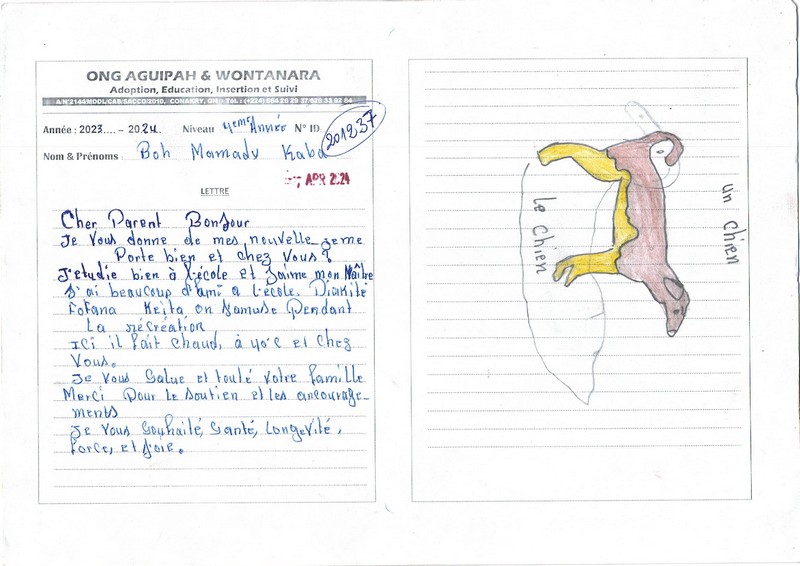 ONG AGUIPAH & WONTANARA
Adoption, Education, Insertion et Suivi
Année : 2023.... - 2024. Niveau 4eme Année N° ID 201237
Nom & Prénoms : Boh Mamady Kaba
APR 2024
LETTRE
Cher Parent Bonjour
Je vous donne de mes nouvelle jeme
Porte bien et chez Vous ?
J'etudie bien à l'école et J'aime mon Maître
J'ai beaucoup d'ami a l'école. Diakité
Fofana Keita on Samuse Pendant
La récréation,
Ici il fait chaud, à 40°c et Chez
Vous.
Je vous Salue et touté votre famille
Merci Pour le soutien et les encourage-
ments
Je vous Souhaité, Santé, Longevité,
force, et Joie.
un chien
le chien